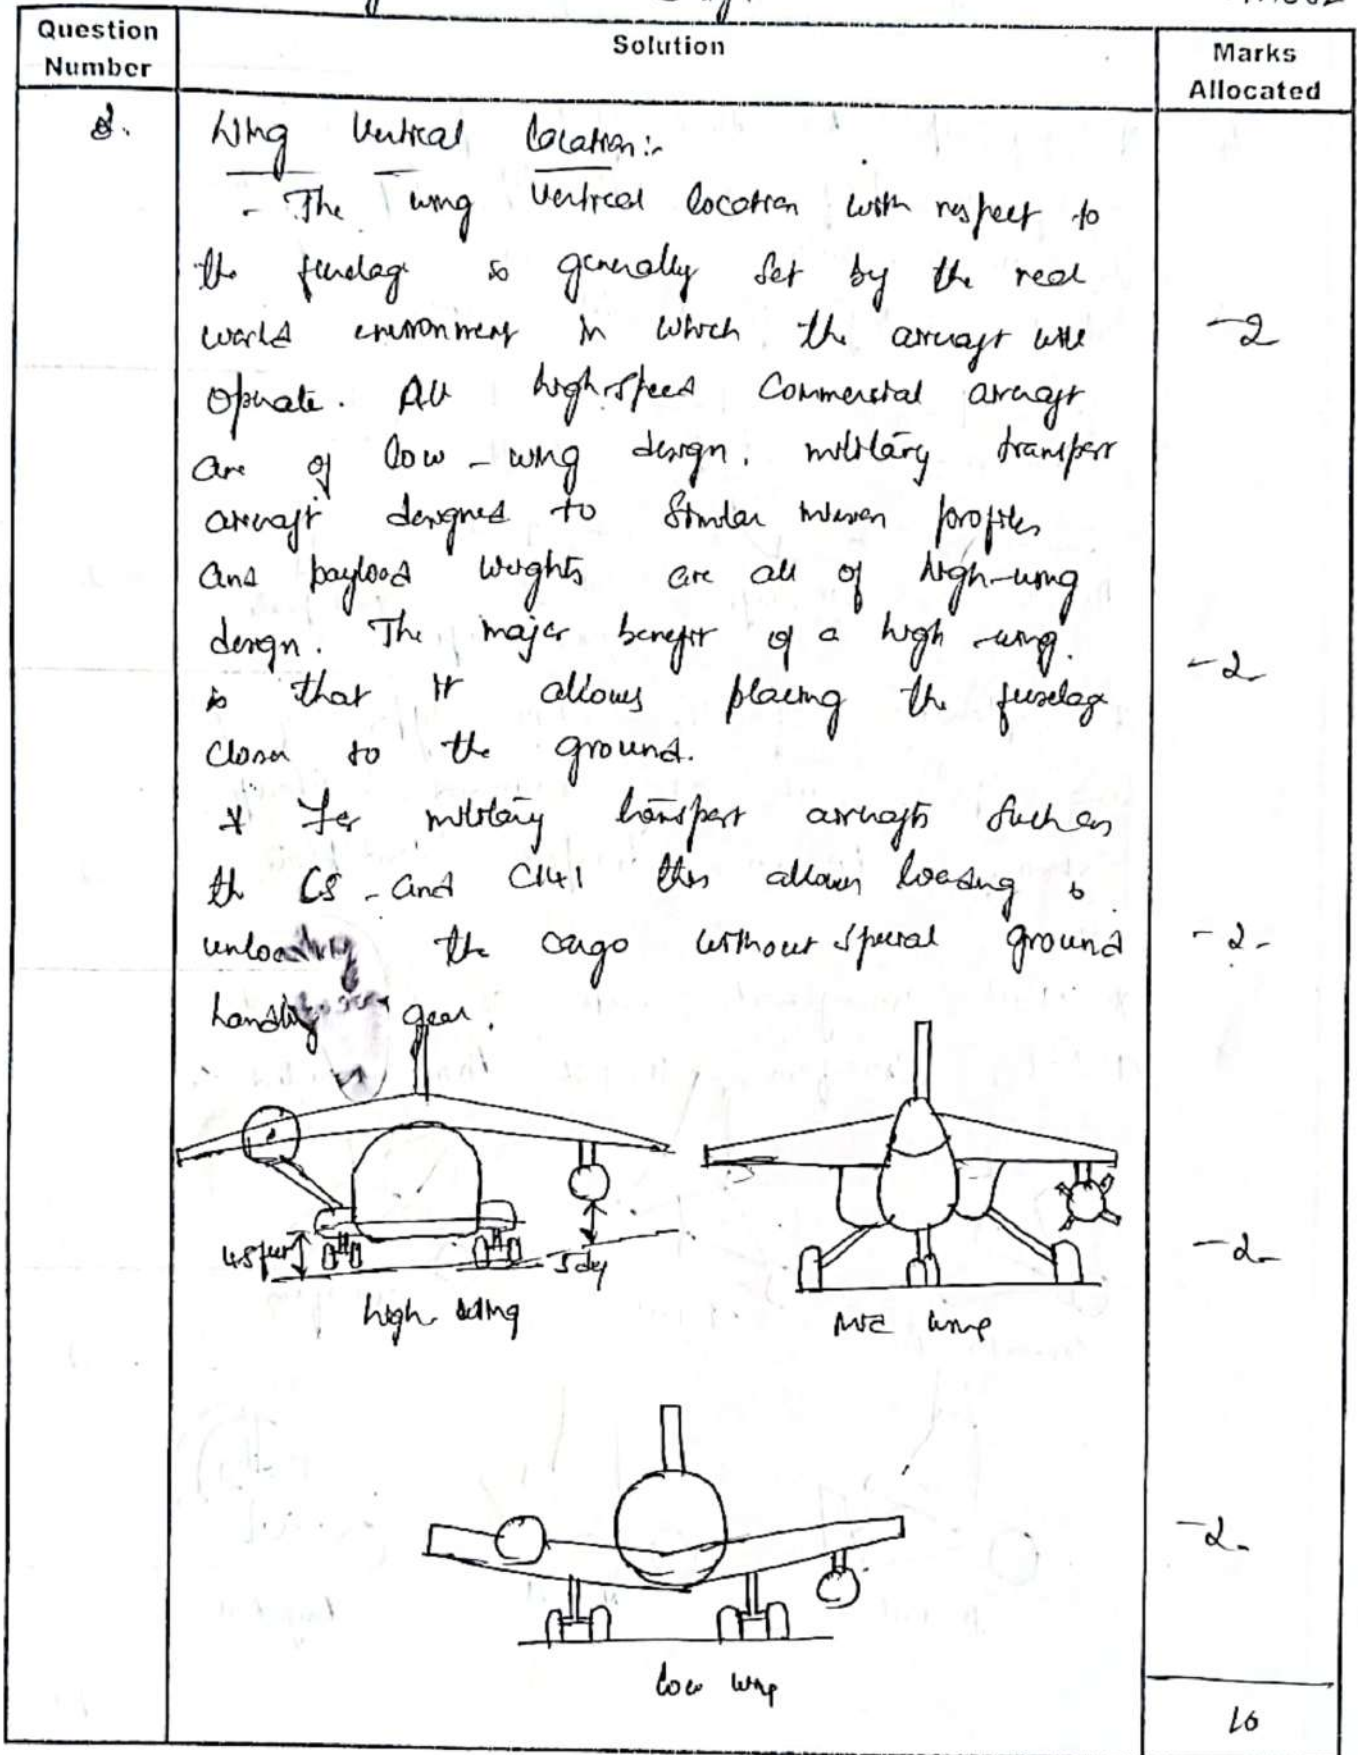 Question Number
Solution
Marks Allocated
2.
Wing Vertical location:-
- The wing vertical location with respect to
the fuselage is generally set by the real
world environment in which the aircraft will
operate. All high-speed commercial aircraft
are of low-wing design. military transport
aircraft designed to similar mission profiles
and payload weights are all of high-wing
design. The major benefit of a high-wing
is that it allows placing the fuselage
closer to the ground.
* For military transport aircrafts such as
the C5 and C141 this allows loading &
unloading the cargo without special ground
handling gear.
-2
-2
-2-
-2-
-2-
5 deg
high wing
Mid wing
low wing
10